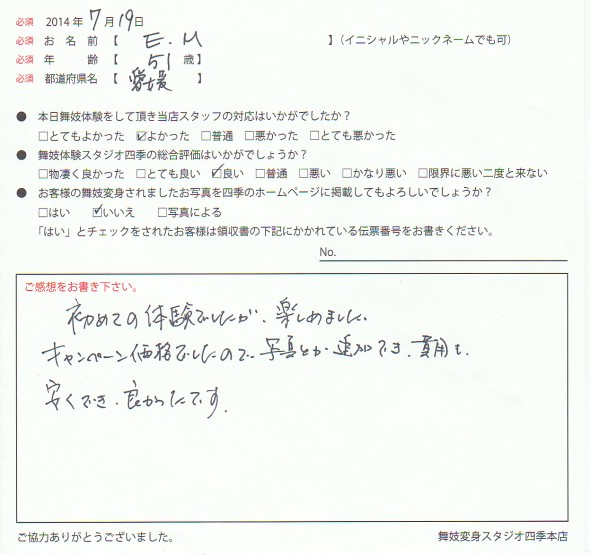 必須 2014年7月19日
必須 お名前【 E.M 】(イニシャルやニックネームでも可)
必須 年齢【 51 歳】
必須 都道府県名【 愛媛 】
● 本日舞妓体験をして頂き当店スタッフの対応はいかがでしたか？
□とてもよかった ☑よかった □普通 □悪かった □とても悪かった
● 舞妓体験スタジオ四季の総合評価はいかがでしょうか？
□物凄く良かった □とても良い ☑良い □普通 □悪い □かなり悪い □限界に悪い二度と来ない
● お客様の舞妓変身されましたお写真を四季のホームページに掲載してもよろしいでしょうか？
□はい ☑いいえ □写真による
「はい」とチェックをされたお客様は領収書の下記にかかれている伝票番号をお書きください。
No.
ご感想をお書き下さい。
初めての体験でしたが、楽しめました。
キャンペーン価格でしたので、写真とか追加でき、費用も、
安くでき、良かったです。
ご協力ありがとうございました。
舞妓変身スタジオ四季本店